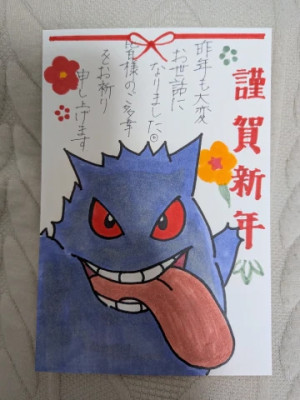 謹賀新年
昨年も大変
お世話に
なりました。
皆様のご多幸
をお祈り
申し上げます